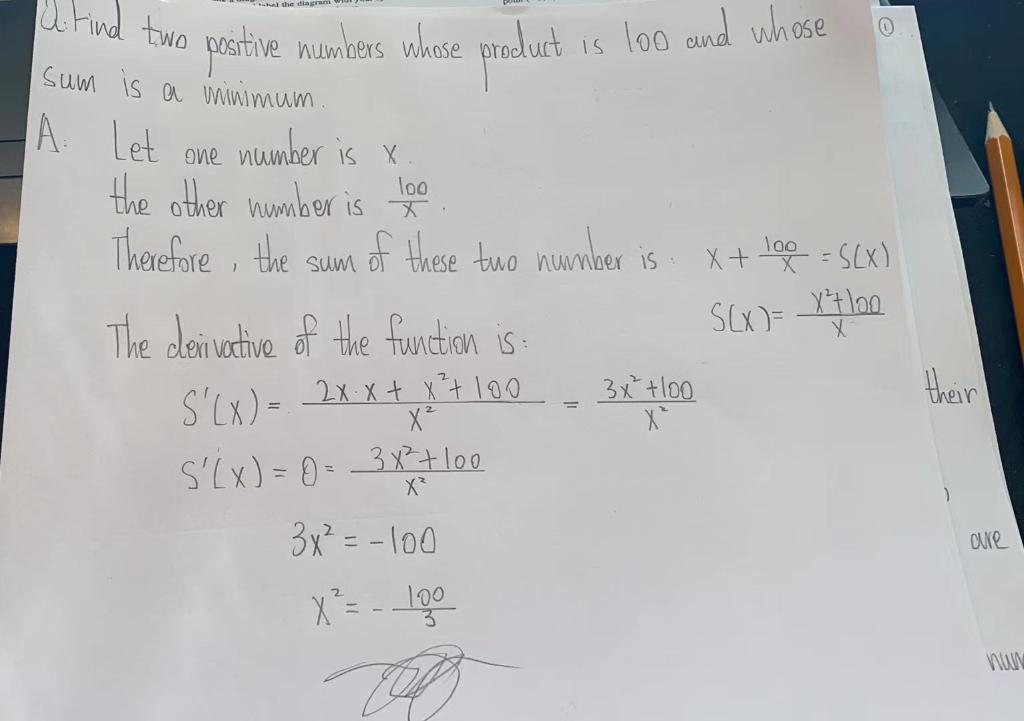 Q. Find two positive numbers whose product is 100 and whose
sum is a minimum.
A: Let one number is x.
the other number is 100/x.
Therefore, the sum of these two number is: x + 100/x = S(x)
S(x) = x²+100/x
The derivative of the function is:
S'(x) = 2x·x + x²+100/x² = 3x²+100/x²
S'(x) = 0 = 3x²+100/x²
3x² = -100
x² = -100/3
①
their
,
are
num